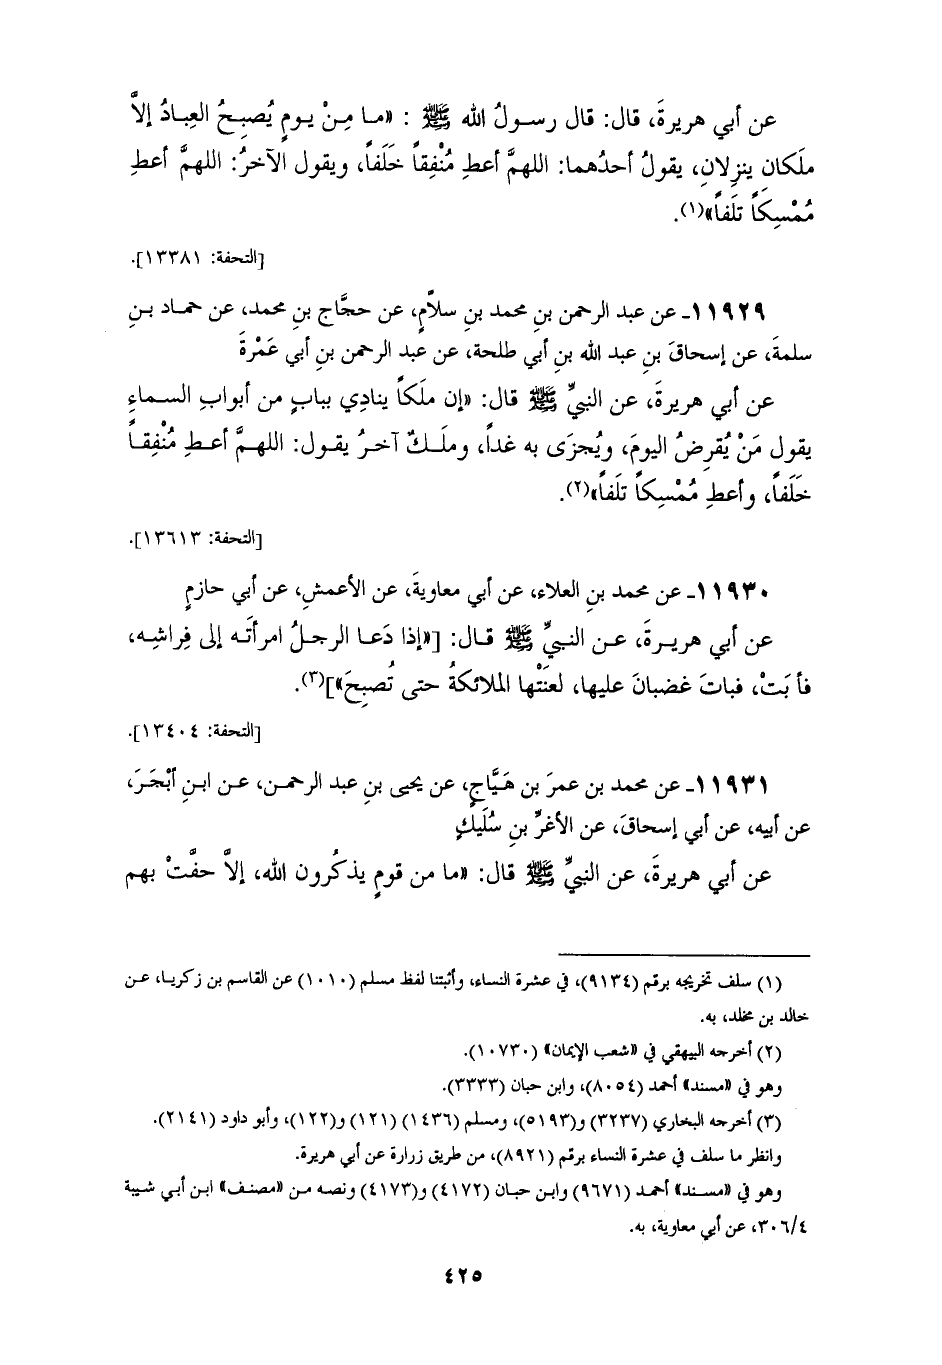 عن أبي هريرةَ، قال: قال رسولُ الله ﷺ : «ما مِنْ يومٍ يُصبِحُ العِبادُ إلاَّ
ملَكان ينزِلانِ، يقولُ أحدُهما: اللهمَّ أعطِ مُنْفِقاً خَلَفاً، ويقول الآخرُ: اللهمَّ أعطِ
مُمْسِكَاً تلَفاً»(١).
[التحفة: ١٣٣٨١].
١١٩٢٩ـ عن عبد الرحمن بنِ محمد بنِ سلاَّمٍ، عن حجَّاج بنِ محمد، عن حماد بنِ
سلمةَ، عن إسحاقَ بنِ عبد الله بنِ أبي طلحة، عن عبد الرحمن بنِ أبي عَمْرةَ
عن أبي هريرةَ، عن النبيِّ ﷺ قال: «إن ملَكاً ينادِي ببابٍ من أبوابِ السماءِ
يقول مَنْ يُقرِضُ اليومَ، ويُجزَى به غداً، وملَكٌ آخرُ يقول: اللهمَّ أعطِ مُنْفِقاً
خَلَفاً، وأعطِ مُمْسِكاً تلَفاً»(٢).
[التحفة: ١٣٦١٣].
١١٩٣٠ـ عن محمد بنِ العلاء، عن أبي معاويةَ، عن الأعمشِ، عن أبي حازمٍ
عن أبي هريرةَ، عن النبيِّ ﷺ قال: [«إذا دَعا الرجلُ امرأتَه إلى فِراشِه،
فأبَتْ، فباتَ غضبانَ عليها، لعنَتْها الملائكةُ حتى تُصبِحَ»](٣).
[التحفة: ١٣٤٠٤].
١١٩٣١ـ عن محمد بن عمرَ بن هَيَّاجٍ، عن يحيى بنِ عبد الرحمن، عن ابنِ أبْجَرَ،
عن أبيه، عن أبي إسحاقَ، عن الأغرِّ بنِ سُلَيكٍ
عن أبي هريرةَ، عن النبيِّ ﷺ قال: «ما من قومٍ يذكُرون الله، إلاَّ حفَّتْ بهم
(١) سلف تخريجه برقم (٩١٣٤)، في عشرة النساء، وأثبتنا لفظ مسلم (١٠١٠) عن القاسم بن زكريا، عن
خالد بن مخلد، به.
(٢) أخرجه البيهقي في «شعب الإيمان» (١٠٧٣٠).
وهو في «مسند» أحمد (٨٠٥٤)، وابن حبان (٣٣٣٣).
(٣) أخرجه البخاري (٣٢٣٧) و(٥١٩٣)، ومسلم (١٤٣٦) (١٢١) و(١٢٢)، وأبو داود (٢١٤١).
وانظر ما سلف في عشرة النساء برقم (٨٩٢١)، من طريق زرارة عن أبي هريرة.
وهو في «مسند» أحمد (٩٦٧١) وابن حبان (٤١٧٢) و(٤١٧٣) ونصه من «مصنف» ابن أبي شيبة
٣٠٦/٤، عن أبي معاوية، به.
٤٢٥